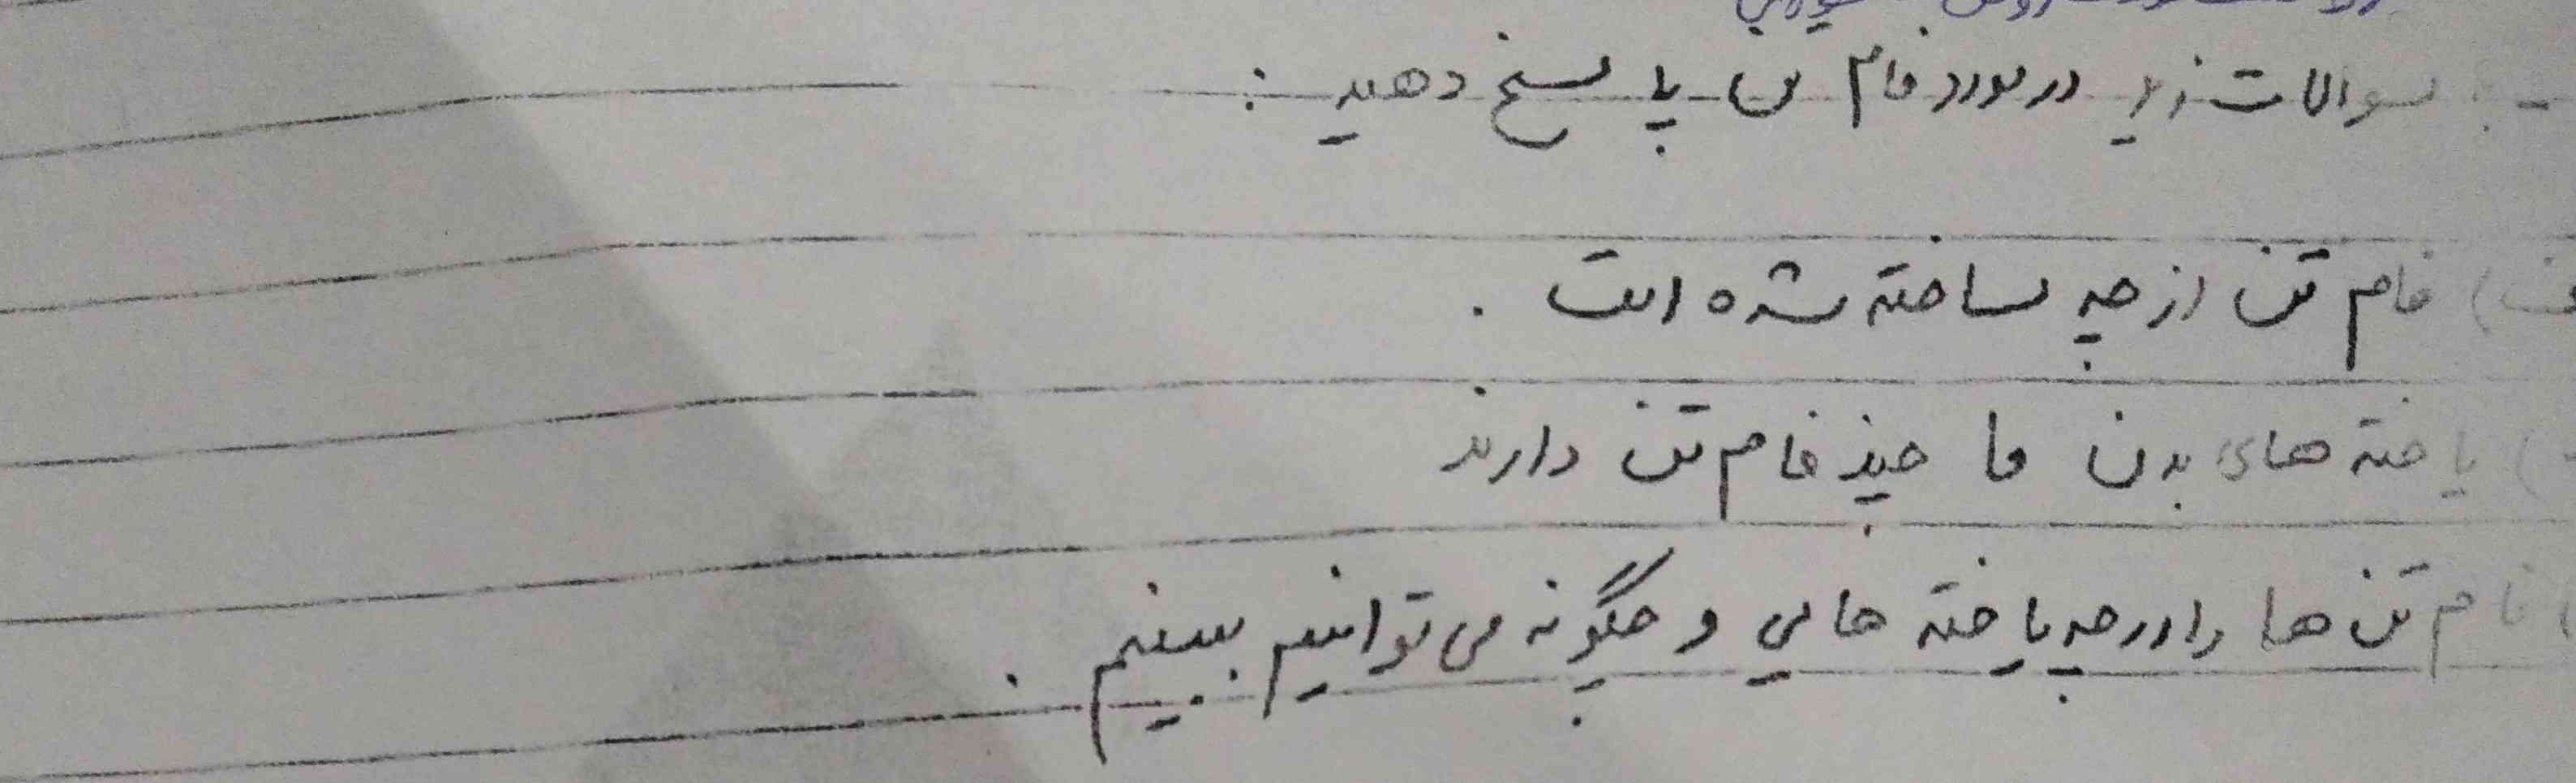 - سوالات زیر در مورد فام تن پاسخ دهید :
ف) فام تن از چه ساخته شده است .
) یاخته های بدن ما چند فام تن دارند
) فام تن ها را در چه یاخته هایی و چگونه می توانیم ببینیم .